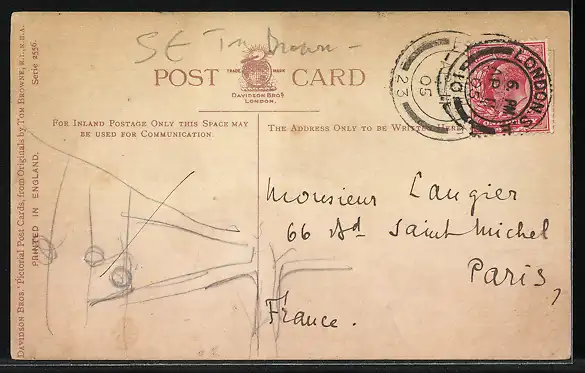 S E Tom Browne -
POST CARD
TRADE MARK
DAVIDSON BROS
LONDON.
FOR INLAND POSTAGE ONLY THIS SPACE MAY
BE USED FOR COMMUNICATION.
THE ADDRESS ONLY TO BE WRITTEN HERE
LONDON.S
6 PM
AP
05
23
Monsieur Laugier
66 Bd Saint Michel
Paris,
France.
DAVIDSON BROS.' Pictorial Post Cards, from Originals by TOM BROWNE, R.I., R.B.A. Serie 2556.
PRINTED IN ENGLAND.